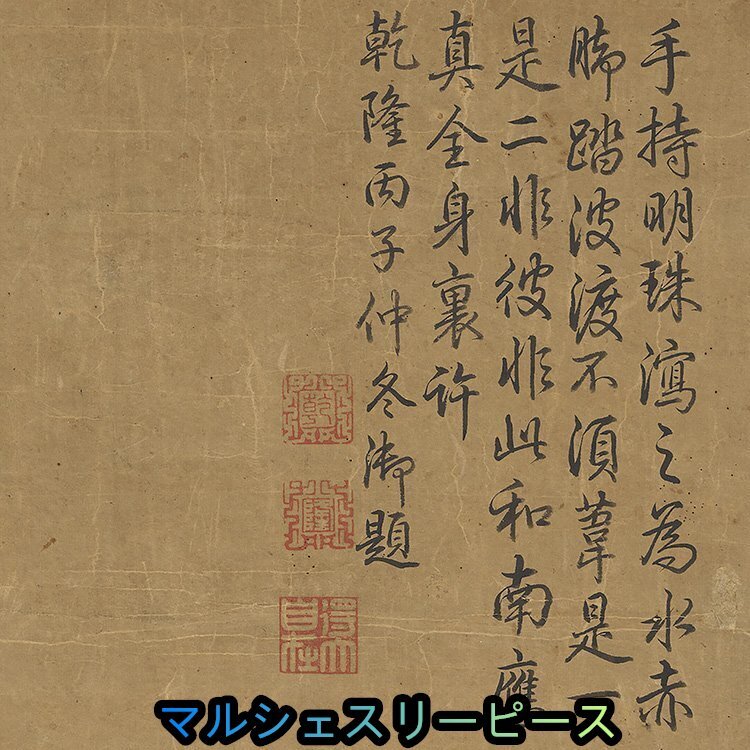 手持明珠瀉之為水赤
腳踏波渡不須葦是一
是二非彼非此和南應
真全身裏許
乾隆丙子仲冬御題
得大
自在
マルシェスリーピース